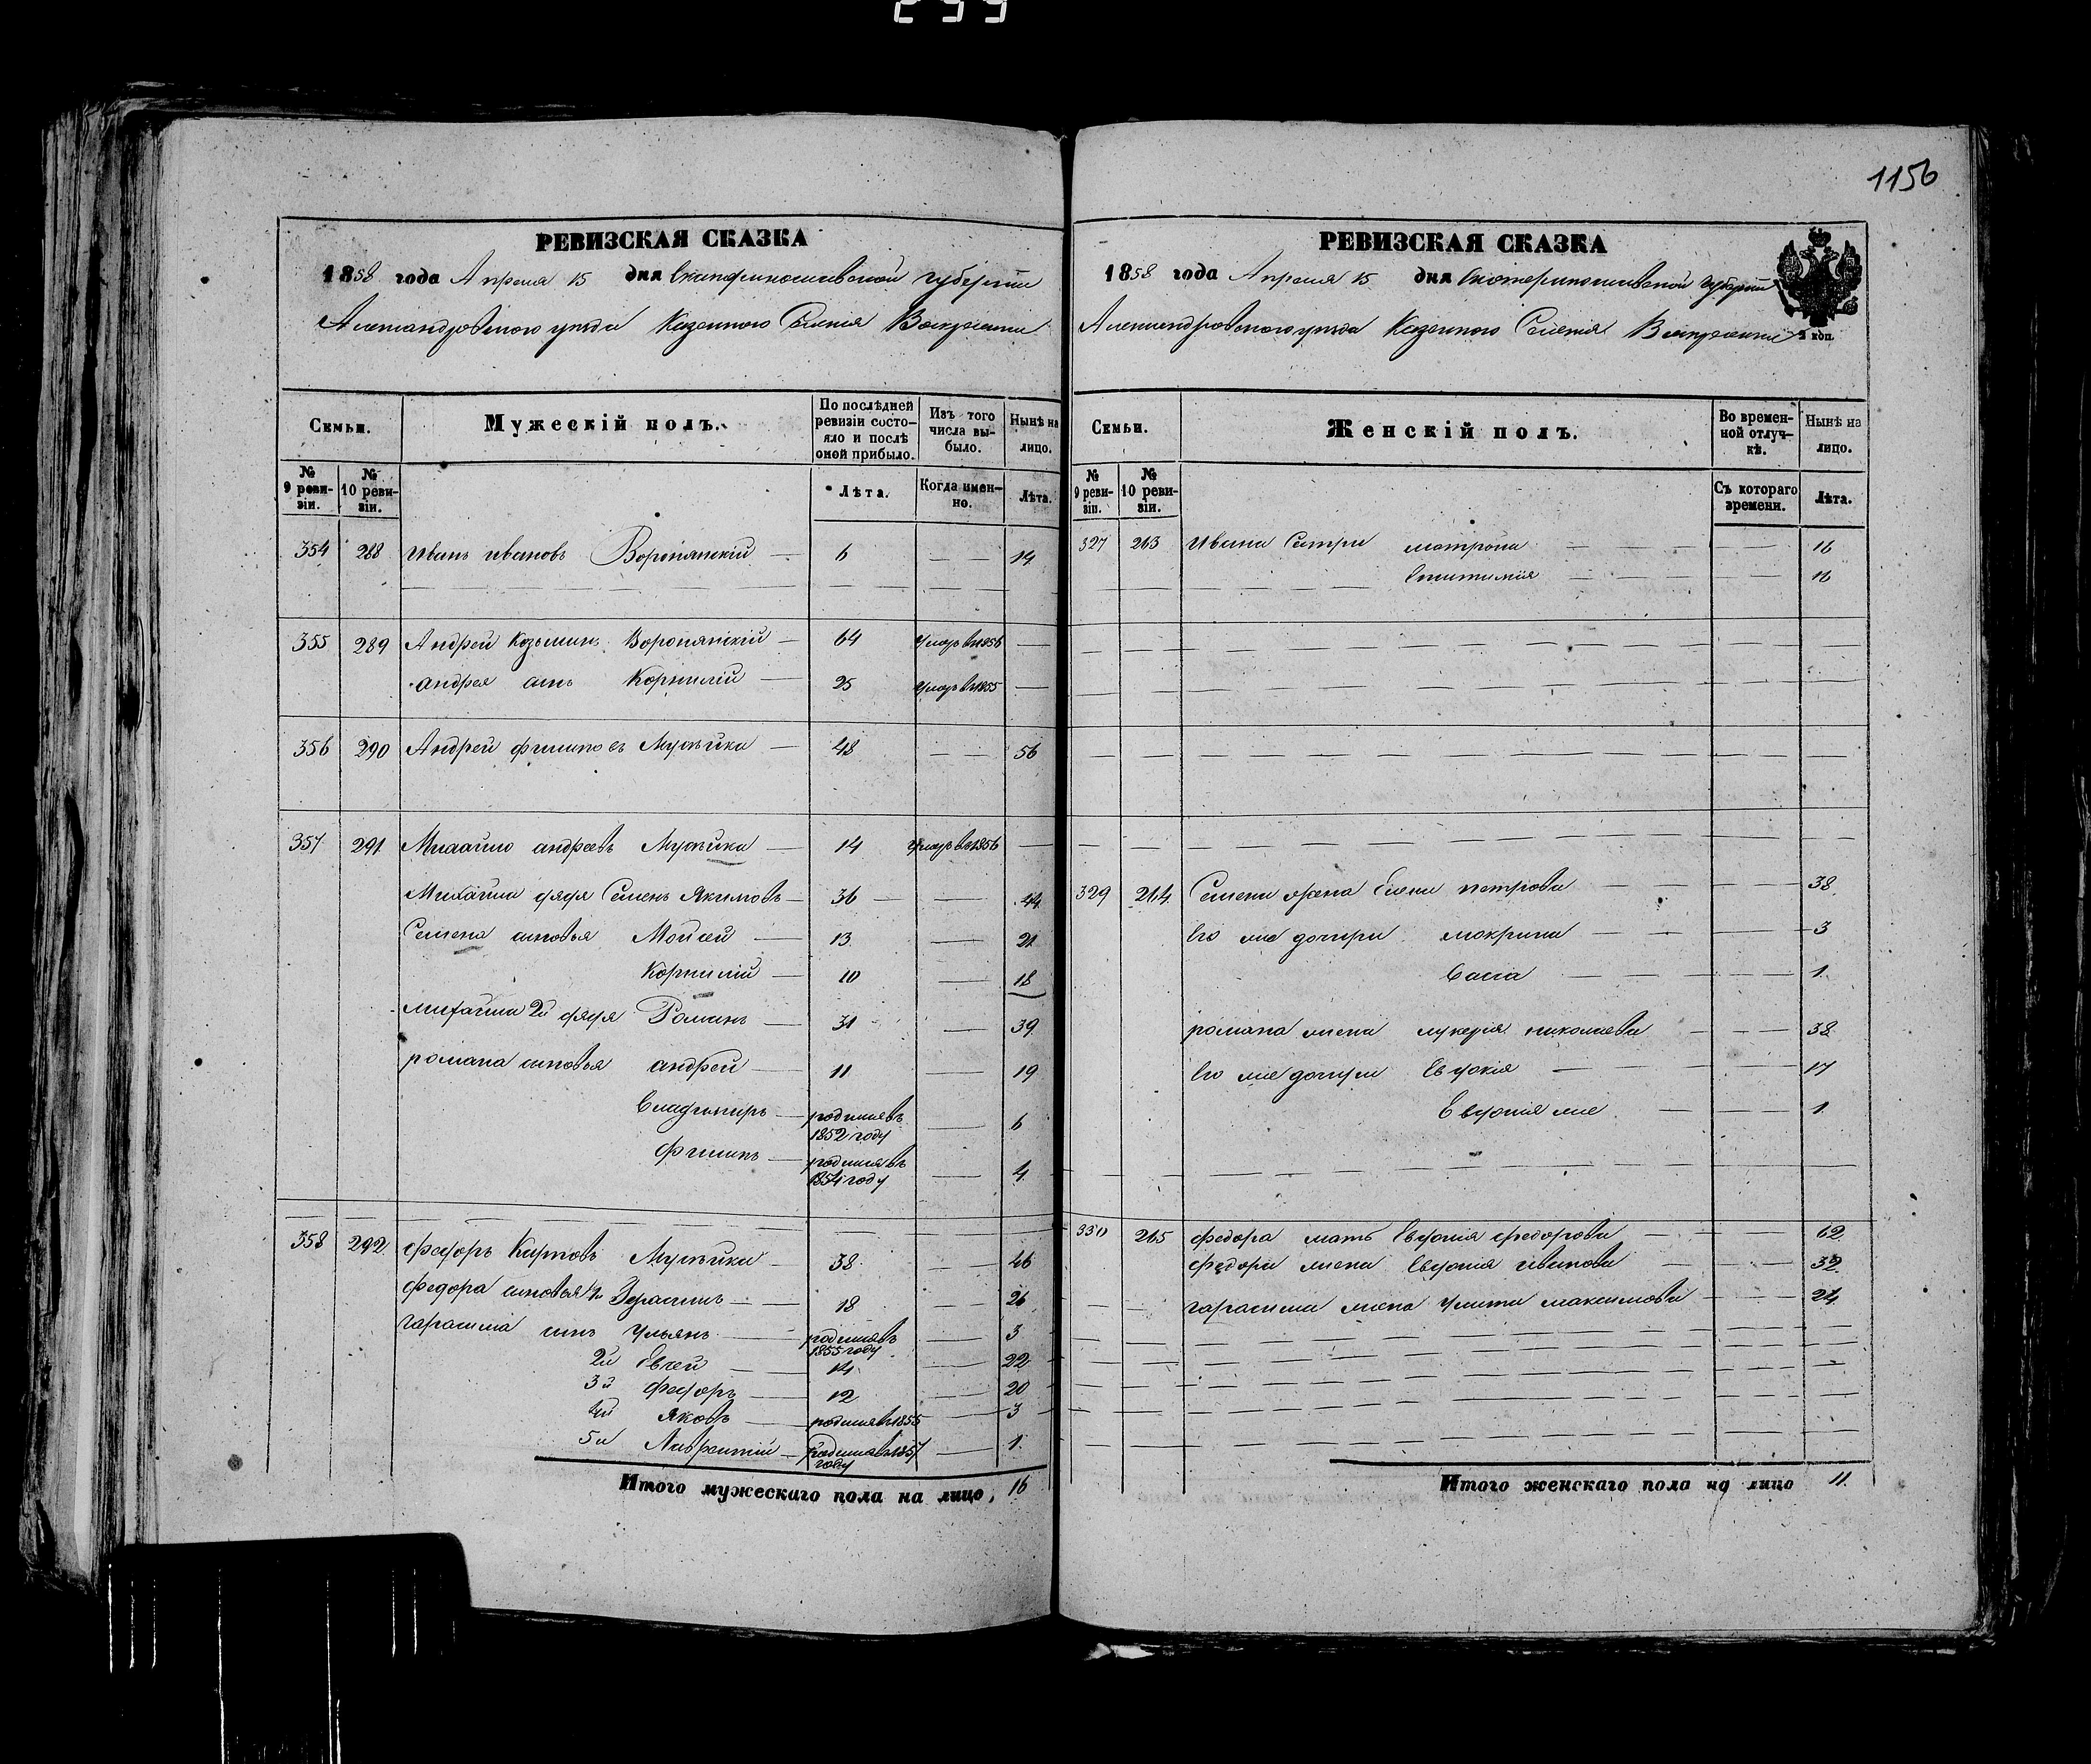 299
1156
РЕВИЗСКАЯ СКАЗКА
1858 года Апреля 15 дня Екатеринославской губернии
Александровского уезда Казенного Селения Воскресенки
Семьи. Мужескій полъ. По послѣдней ревизіи состояло и послѣ оной прибыло. Изъ того числа выбыло. Нынѣ на лицо.
№ 9 ревизіи. № 10 ревизіи. Лѣта. Когда именно. Лѣта.
354 288 Иванъ ивановъ Воропянскій 6 14
355 289 Андрей Козьминъ Воропянскій 64 умеръ в 1856
андрея сынъ Корнилій 25 умеръ в 1855
356 290 Андрей филиповъ 48 56
357 291 Михайло андреевъ 14 умеръ в 1856
Михайла дядя Семенъ Якимовъ 36 44
Семена сыновья Мойсей 13 21
Корнилій 10 18
михайла 2й дядя Романъ 31 39
романа сыновья андрей 11 19
Владимиръ родился въ 1852 году 6
филипъ родился въ 1854 году 4
358 292 федоръ Карповъ 38 46
федора сыновья 1й Герасимъ 18 26
гарасима сынъ ульянъ родился въ 1855 году 3
2й Евсей 14 22
3й федоръ 12 20
4й Яковъ родился в 1855 3
5й Лаврентий родился в 1857 году 1
Итого мужескаго пола на лицо, 16
РЕВИЗСКАЯ СКАЗКА
1858 года Апреля 15 дня Екатеринославской губернии
Александровского уезда Казенного Селения Воскресенки
2 коп.
Семьи. Женскій полъ. Во временной отлучкѣ. Нынѣ на лицо.
№ 9 ревизіи. № 10 ревизіи. Съ котораго времени. Лѣта.
327 263 Ивана Сестры матрона 16
Епистимия 16
329 264 Семена жена Елена петрова 38
Его же дочери мокрина 3
Васса 1
романа жена лукерия николаева 38
Его же дочери Евдокия 17
Евдокия же 1
330 265 федора мать Евдокия федорова 62
федора жена Евдокия иванова 32
гарасима жена улита максимова 24
Итого женскаго пола на лицо 11